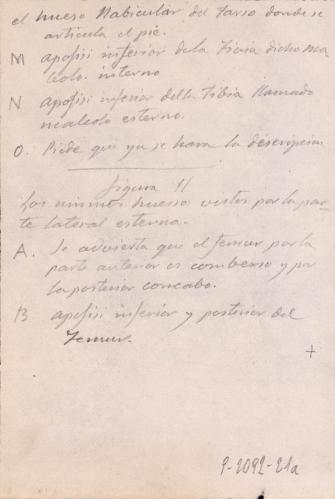 el hueso Nabicular del Tarso donde se
articula el pie.
M apofisi inferior de la Tivia dicho ma
leolo interno
N apofisi inferior della Tibia llamado
malcolo esterno.
O. Piede qui ya se hara la descripcion
figura 11
Los mismos huesso vistos por la par
te lateral esterna.
A. Se advierta que el femur por la
parte anterior es comberso y por
la posterior concabo.
B apofisi inferior y posterior del
Femur.
+
P-2092-21a